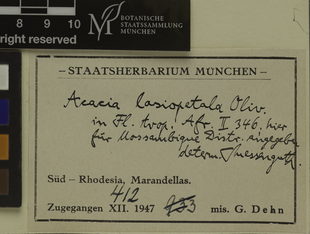 8 9 10
ght reserved
M
BOTANISCHE
STAATSSAMMLUNG
MÜNCHEN
– STAATSHERBARIUM MÜNCHEN –
Acacia lasiopetala Oliv.
in Fl. trop. Afr. II 346, hier
für Mossambique Distr. angegeben
determ. Suessenguth.
Süd – Rhodesia, Marandellas.
412
Zugegangen XII. 1947 mis. G. Dehn